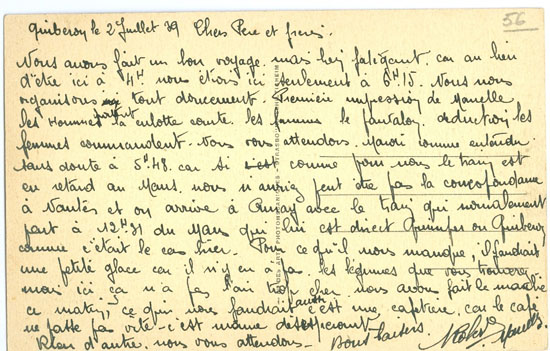 56
Quiberon le 2 Juillet 39 Chers Père et frères.
Nous avons fait un bon voyage mais bien fatigant car au lieu
d'être ici à 4H nous étions ici seulement à 6H15. Nous nous
organisons tout doucement. Première impression de
les Hommes portent la culotte courte les femmes le pantalon déduction les
femmes commandent. Nous vous attendons Mardi comme entendu
sans doute à 5H.48. car si c'est comme pour nous le train est
en retard au Mans. nous n'aurez peut être pas la correspondance
à Nantes et on arrive à Auray avec le train qui normalement
part à 12H31 du Mans qui lui est direct Quimper ou Quiberon
comme c'était le cas hier. Pour ce qu'il nous manque, il faudrait
une petite glace car il n'y en a pas. les légumes que vous trouverez
mais ici ça n'a pas l'air trop cher. nous avons fait le marché
ce matin, ce qui nous faudrait aussi c'est une cafetière, car le café
ne passe pas vite c'est même
Rien d'autre, nous vous attendons. Bons baisers.